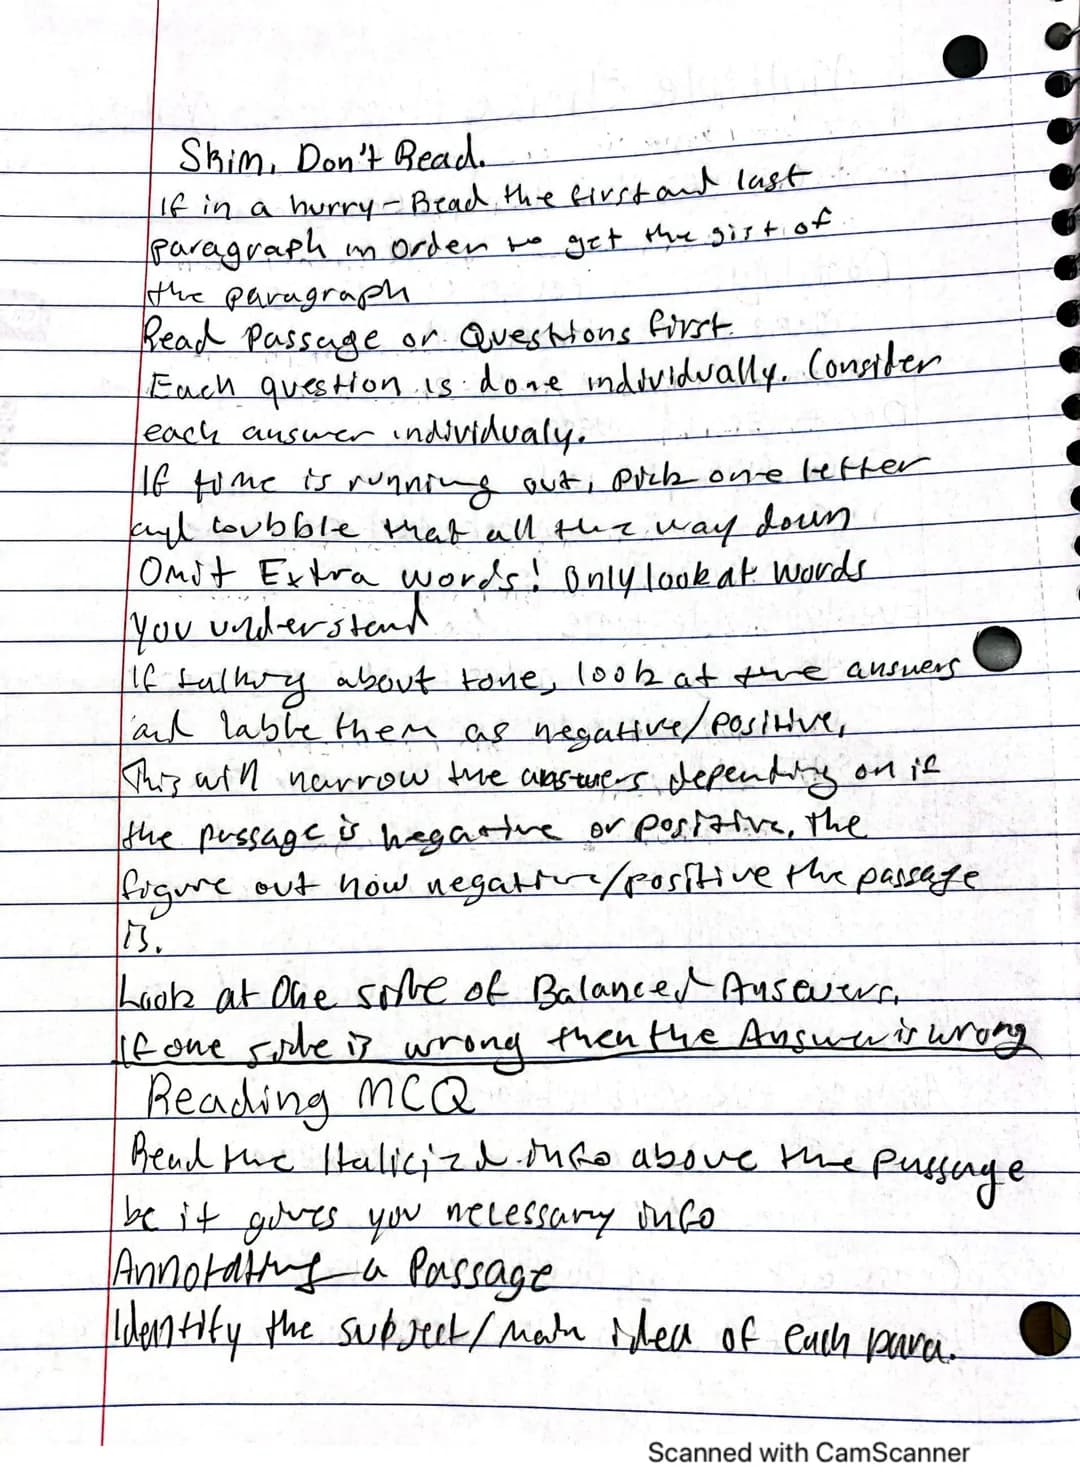 Skim, Don't Read.
If in a hurry - Read the first and last
paragraph in order to get the gist of
the paragraph
Read Passage or Questions first.
Each question is done individually. Consider
each answer individualy.
If time is running out, pick one letter
and bubble that all the way down
Omit Extra words! Only look at words
you understand
If talking about tone, look at the answers
and lable them as negative/positive,
This will narrow the answers depending on if
the passage is negative or positive, the
figure out how negative/positive the passage
is.
Look at One side of Balanced Answers.
If one side is wrong then the Answer is wrong
Reading MCQ
Read the Italicizd info above the passage
bc it gives you necessary info
Annotating a Passage
Identify the subject/main idea of each para.
Scanned with CamScanner